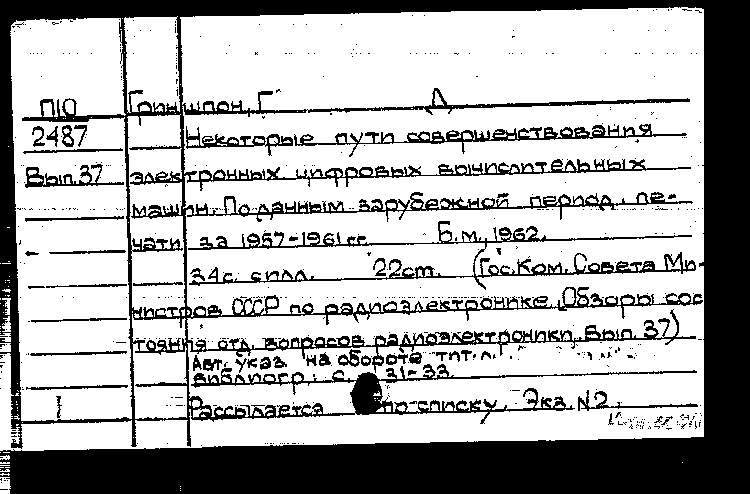 П10 Гриншпон, Г Д
2487 Некоторые пути совершенствования
Вып.37 электронных цифровых вычислительных
машин. По данным зарубежной период. пе-
чати за 1957-1961 гг. Б.м., 1962.
34с. с илл. 22см. (Гос. Ком. Совета Ми-
нистров СССР по радиоэлектронике. Обзоры сос
тояния отд. вопросов радиоэлектроники. Вып. 37)
Авт. указ. на обороте тит. л.
Библиогр.: с. 31-33
1 Рассылается по списку. Экз. №2.